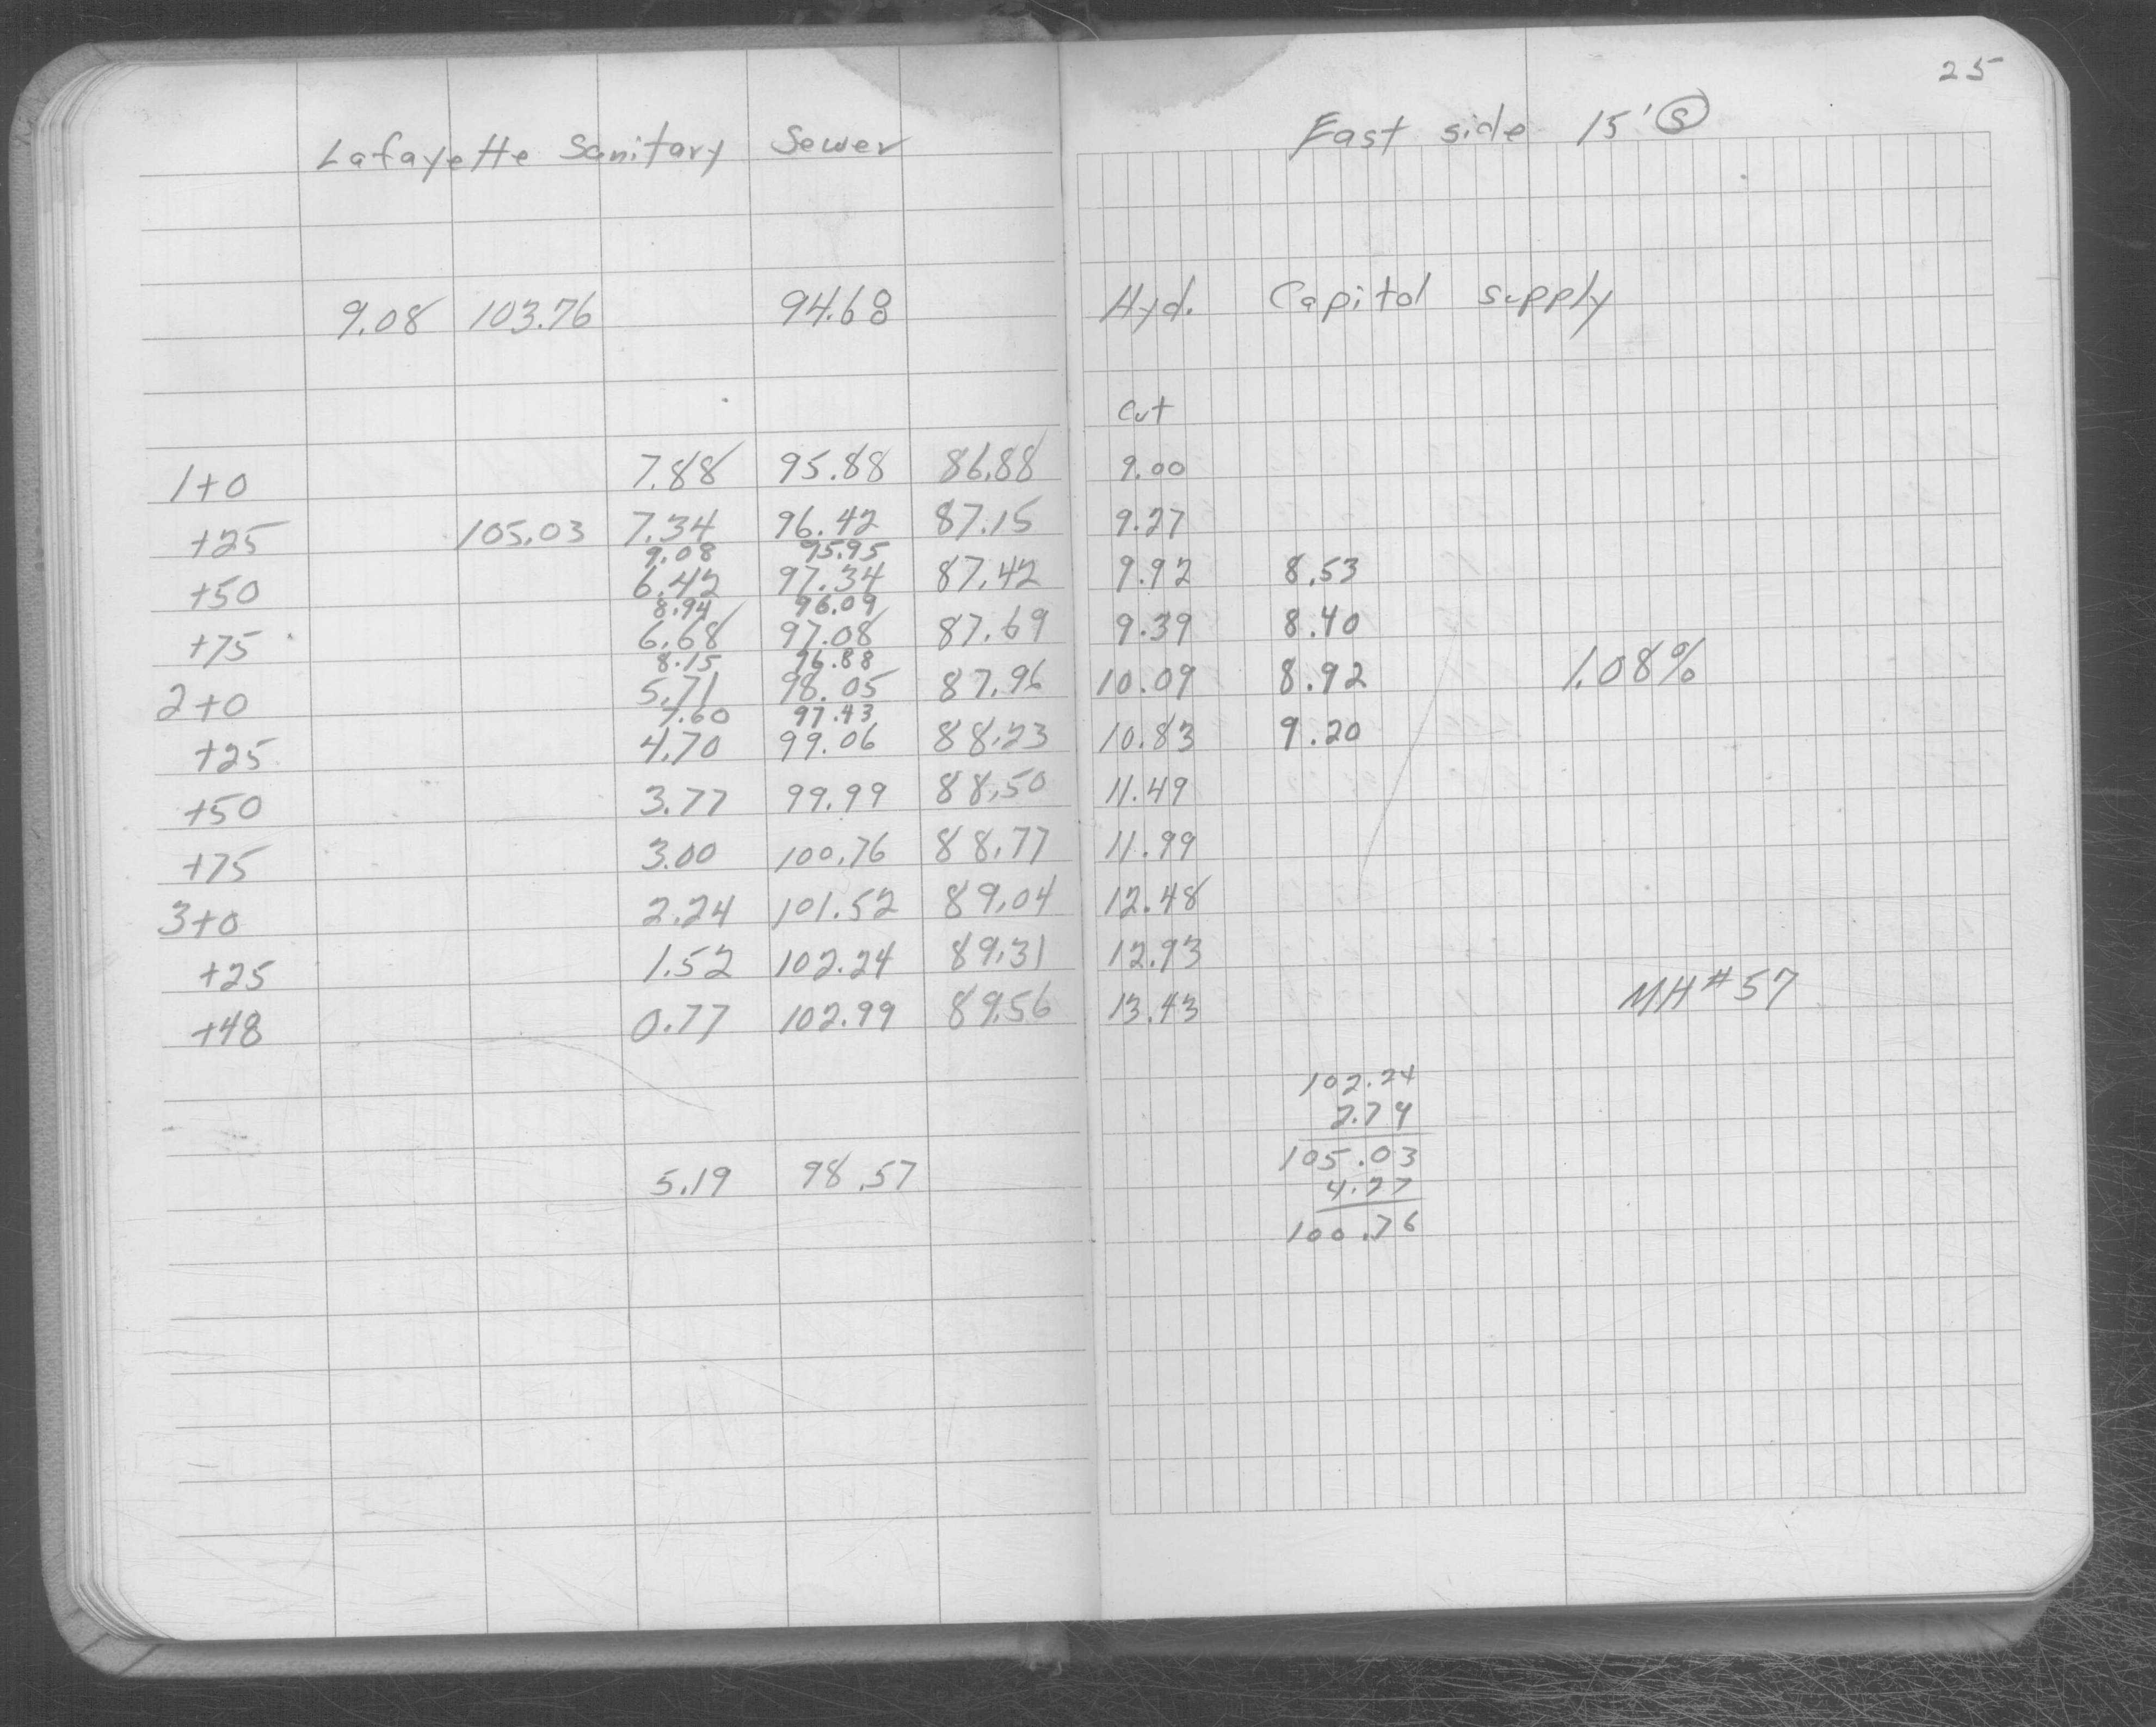 25
Lafayette Sanitary Sewer East side 15' Ⓢ
9.08 103.76 94.68 Hyd. Capitol supply
Cut
1+0 7.88 95.88 86.88 9.00
+25 105.03 7.34 96.42 87.15 9.27
9.08 95.95
+50 6.42 97.34 87.42 9.92 8.53
8.94 96.09
+75 6.68 97.08 87.69 9.39 8.40
8.15 96.88
2+0 5.71 98.05 87.96 10.09 8.92 1.08%
7.60 97.43
+25 4.70 99.06 88.23 10.83 9.20
+50 3.77 99.99 88.50 11.49
+75 3.00 100.76 88.77 11.99
3+0 2.24 101.52 89.04 12.48
+25 1.52 102.24 89.31 12.93
+48 0.77 102.99 89.56 13.43 MH #57
102.24
2.79
105.03
5.19 98.57
4.27
100.76